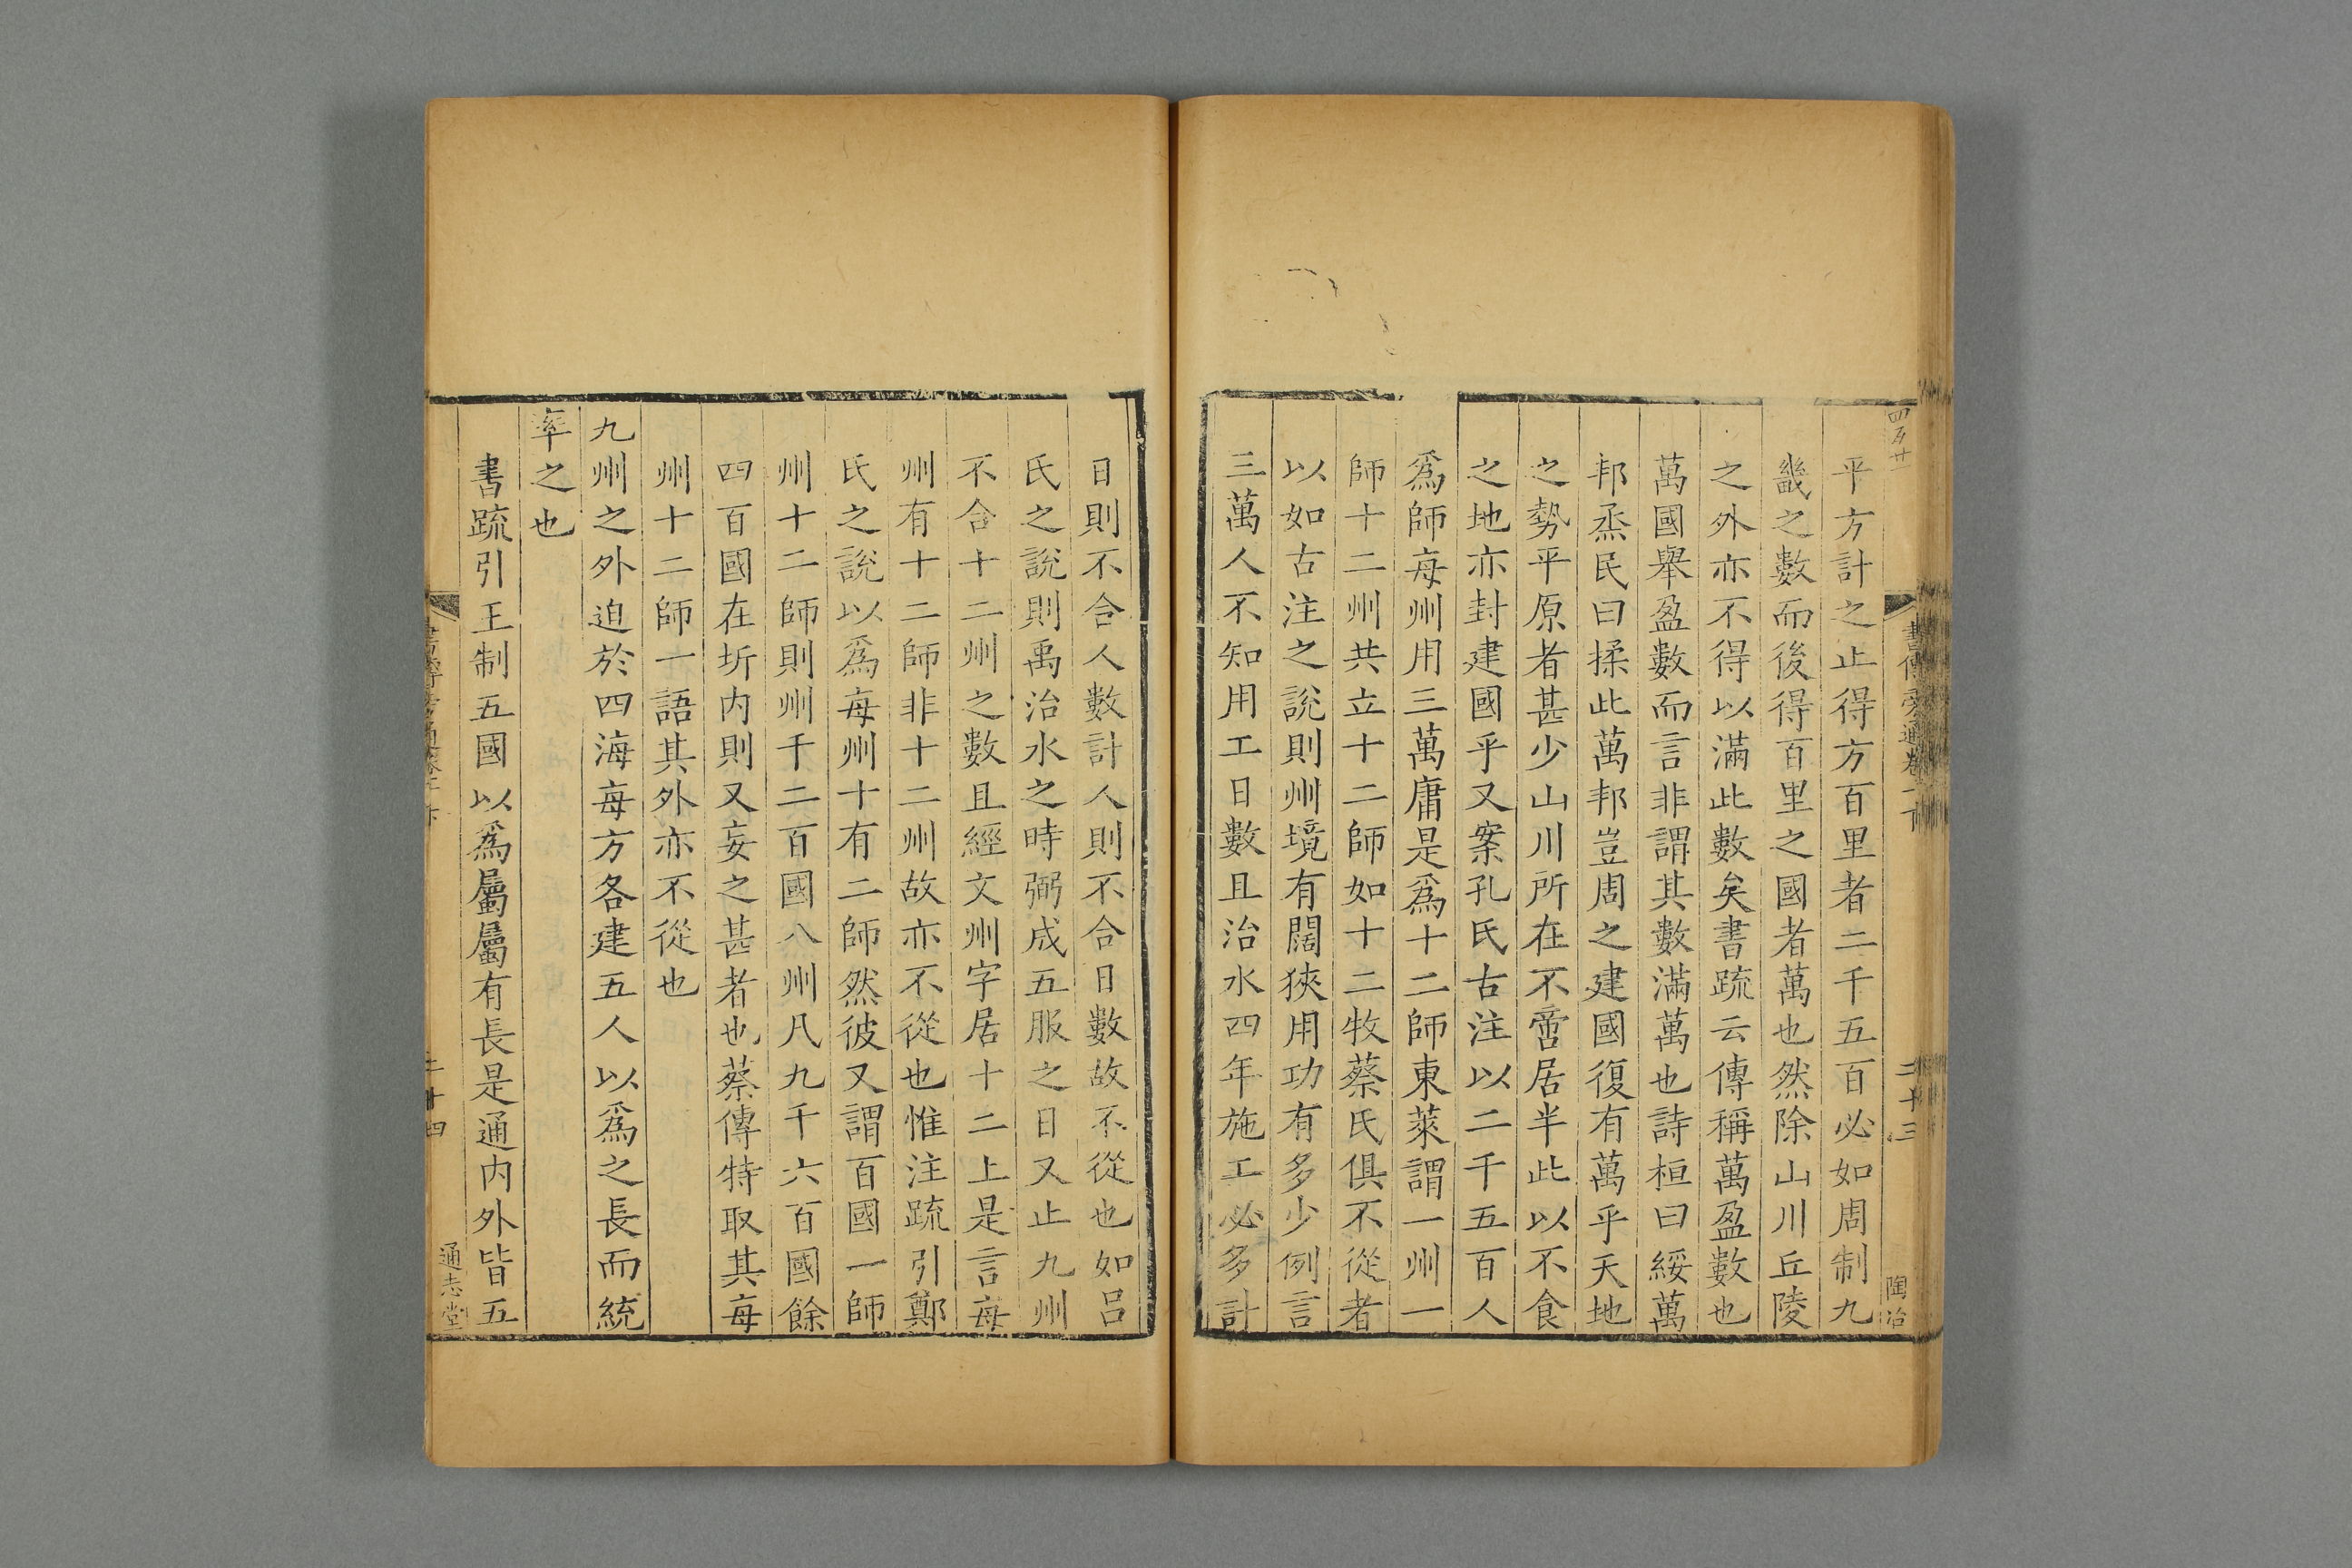 平方計之止得方百里者二千五百必如周制九
畿之數而後得百里之國者萬也然除山川丘陵
之外亦不得以滿此數矣書疏云傳稱萬盈數也
萬國舉盈數而言非謂其數滿萬也詩桓曰綏萬
邦烝民曰揉此萬邦豈周之建國復有萬乎天地
之勢平原者甚少山川所在不啻居半此以不食
之地亦封建國乎又案孔氏古注以二千五百人
爲師每州用三萬庸是爲十二師東萊謂一州一
師十二州共立十二師如十二牧蔡氏俱不從者
以如古注之說則州境有闊狹用功有多少例言
三萬人不知用工日數且治水四年施工必多計
日則不合人數計人則不合日數故不從也如呂
氏之說則禹治水之時弼成五服之日又止九州
不合十二州之數且經文州字居十二上是言每
州有十二師非十二州故亦不從也惟注疏引鄭
氏之說以爲每州十有二師然彼又謂百國一師
州十二師則州千二百國八州凡九千六百國餘
四百國在圻內則又妄之甚者也蔡傳特取其每
州十二師一語其外亦不從也
九州之外迫於四海每方各建五人以爲之長而統
率之也
書疏引王制五國以爲屬屬有長是通內外皆五
書傳旁通卷二下
二十三
陶冶
二十四
通志堂